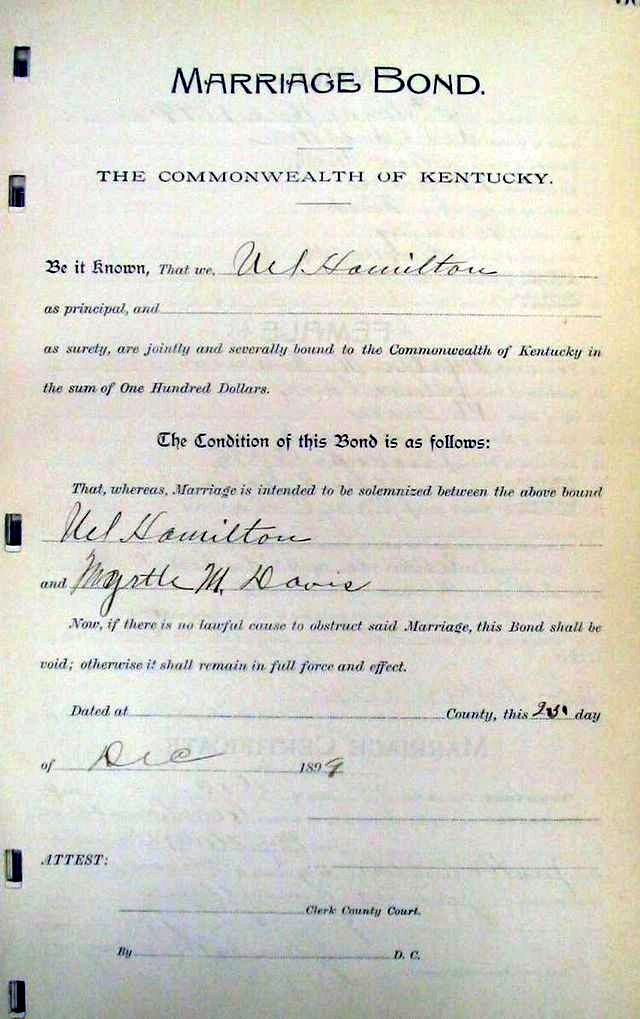 MARRIAGE BOND.
THE COMMONWEALTH OF KENTUCKY.
Be it known, That we, Uel Hamilton
as principal, and
as surety, are jointly and severally bound to the Commonwealth of Kentucky in
the sum of One Hundred Dollars.
The Condition of this Bond is as follows:
That, whereas, Marriage is intended to be solemnized between the above bound
Uel Hamilton
and Myrtle M. Davis
Now, if there is no lawful cause to obstruct said Marriage, this Bond shall be
void; otherwise it shall remain in full force and effect.
Dated at County, this day
of Dec 1899
ATTEST:
Clerk County Court.
By D. C.